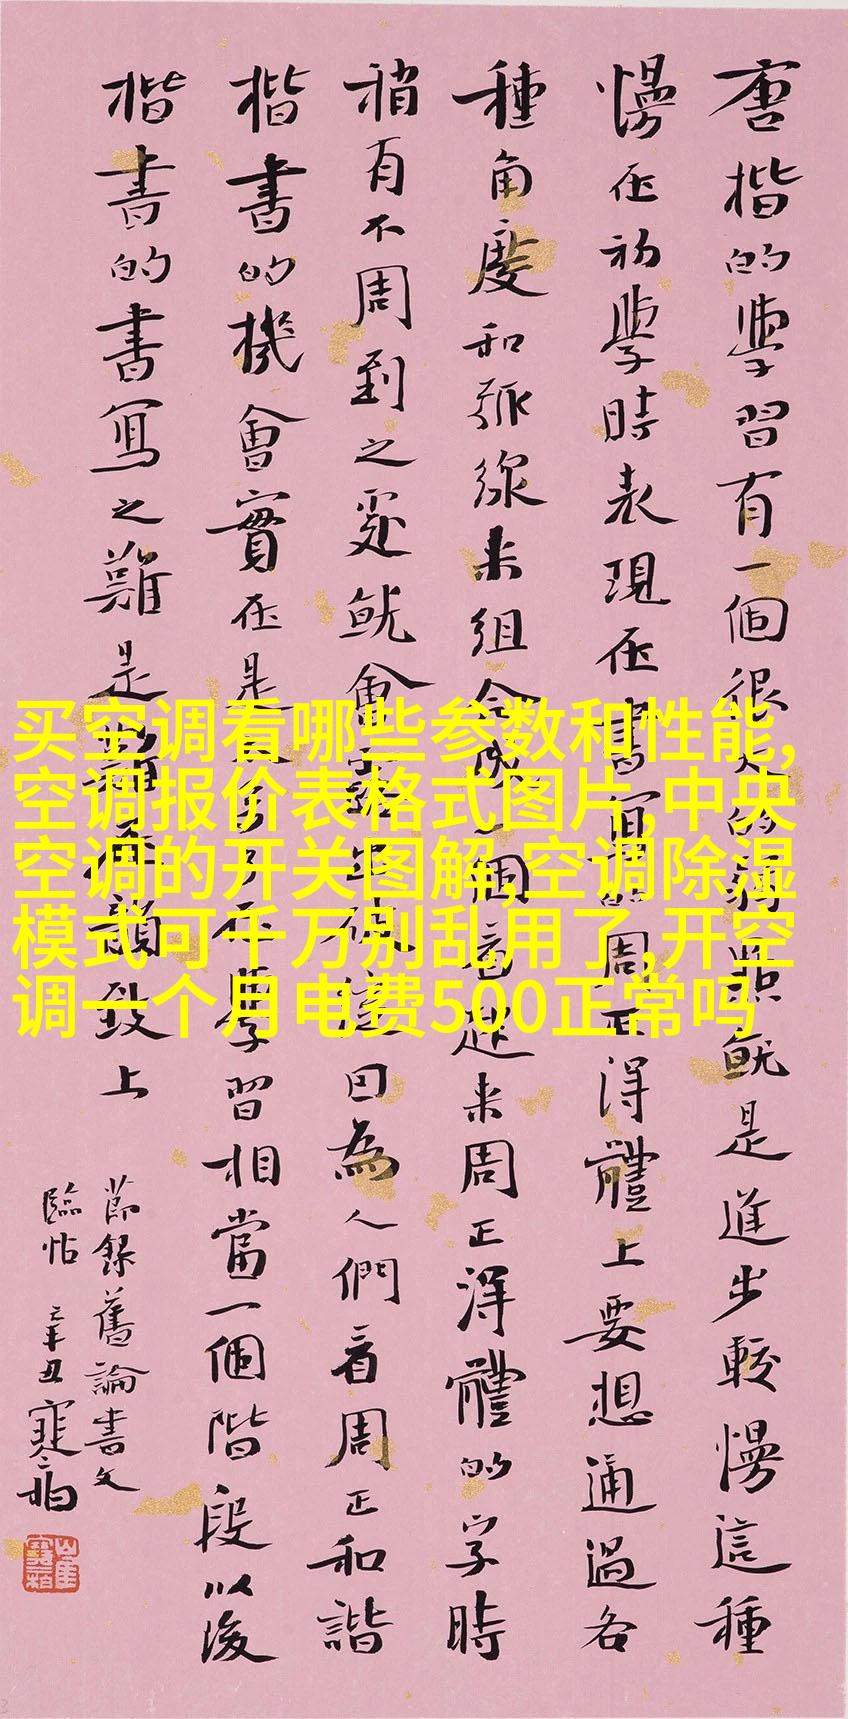 唐楷的學習有一個很大的弱點就是進步較慢這種
慢在初學時表現在書寫的周正得體上要想通過各
種角度和弧線來組合成一個看起來周正得體的字時
稍有不周到之處就會露出破綻因為人們看周正和諧
楷書的機會實在是太多了在學習相當一個階段以後
楷書的書寫之難是難在韻致上
節錄舊論書文
臨帖 辛丑 寒柏
崔寒柏
买空调看哪些参数和性能,
空调报价表格式图片,中央
空调的开关图解,空调除湿
模式可千万别乱用了,开空
调一个月电费500正常吗